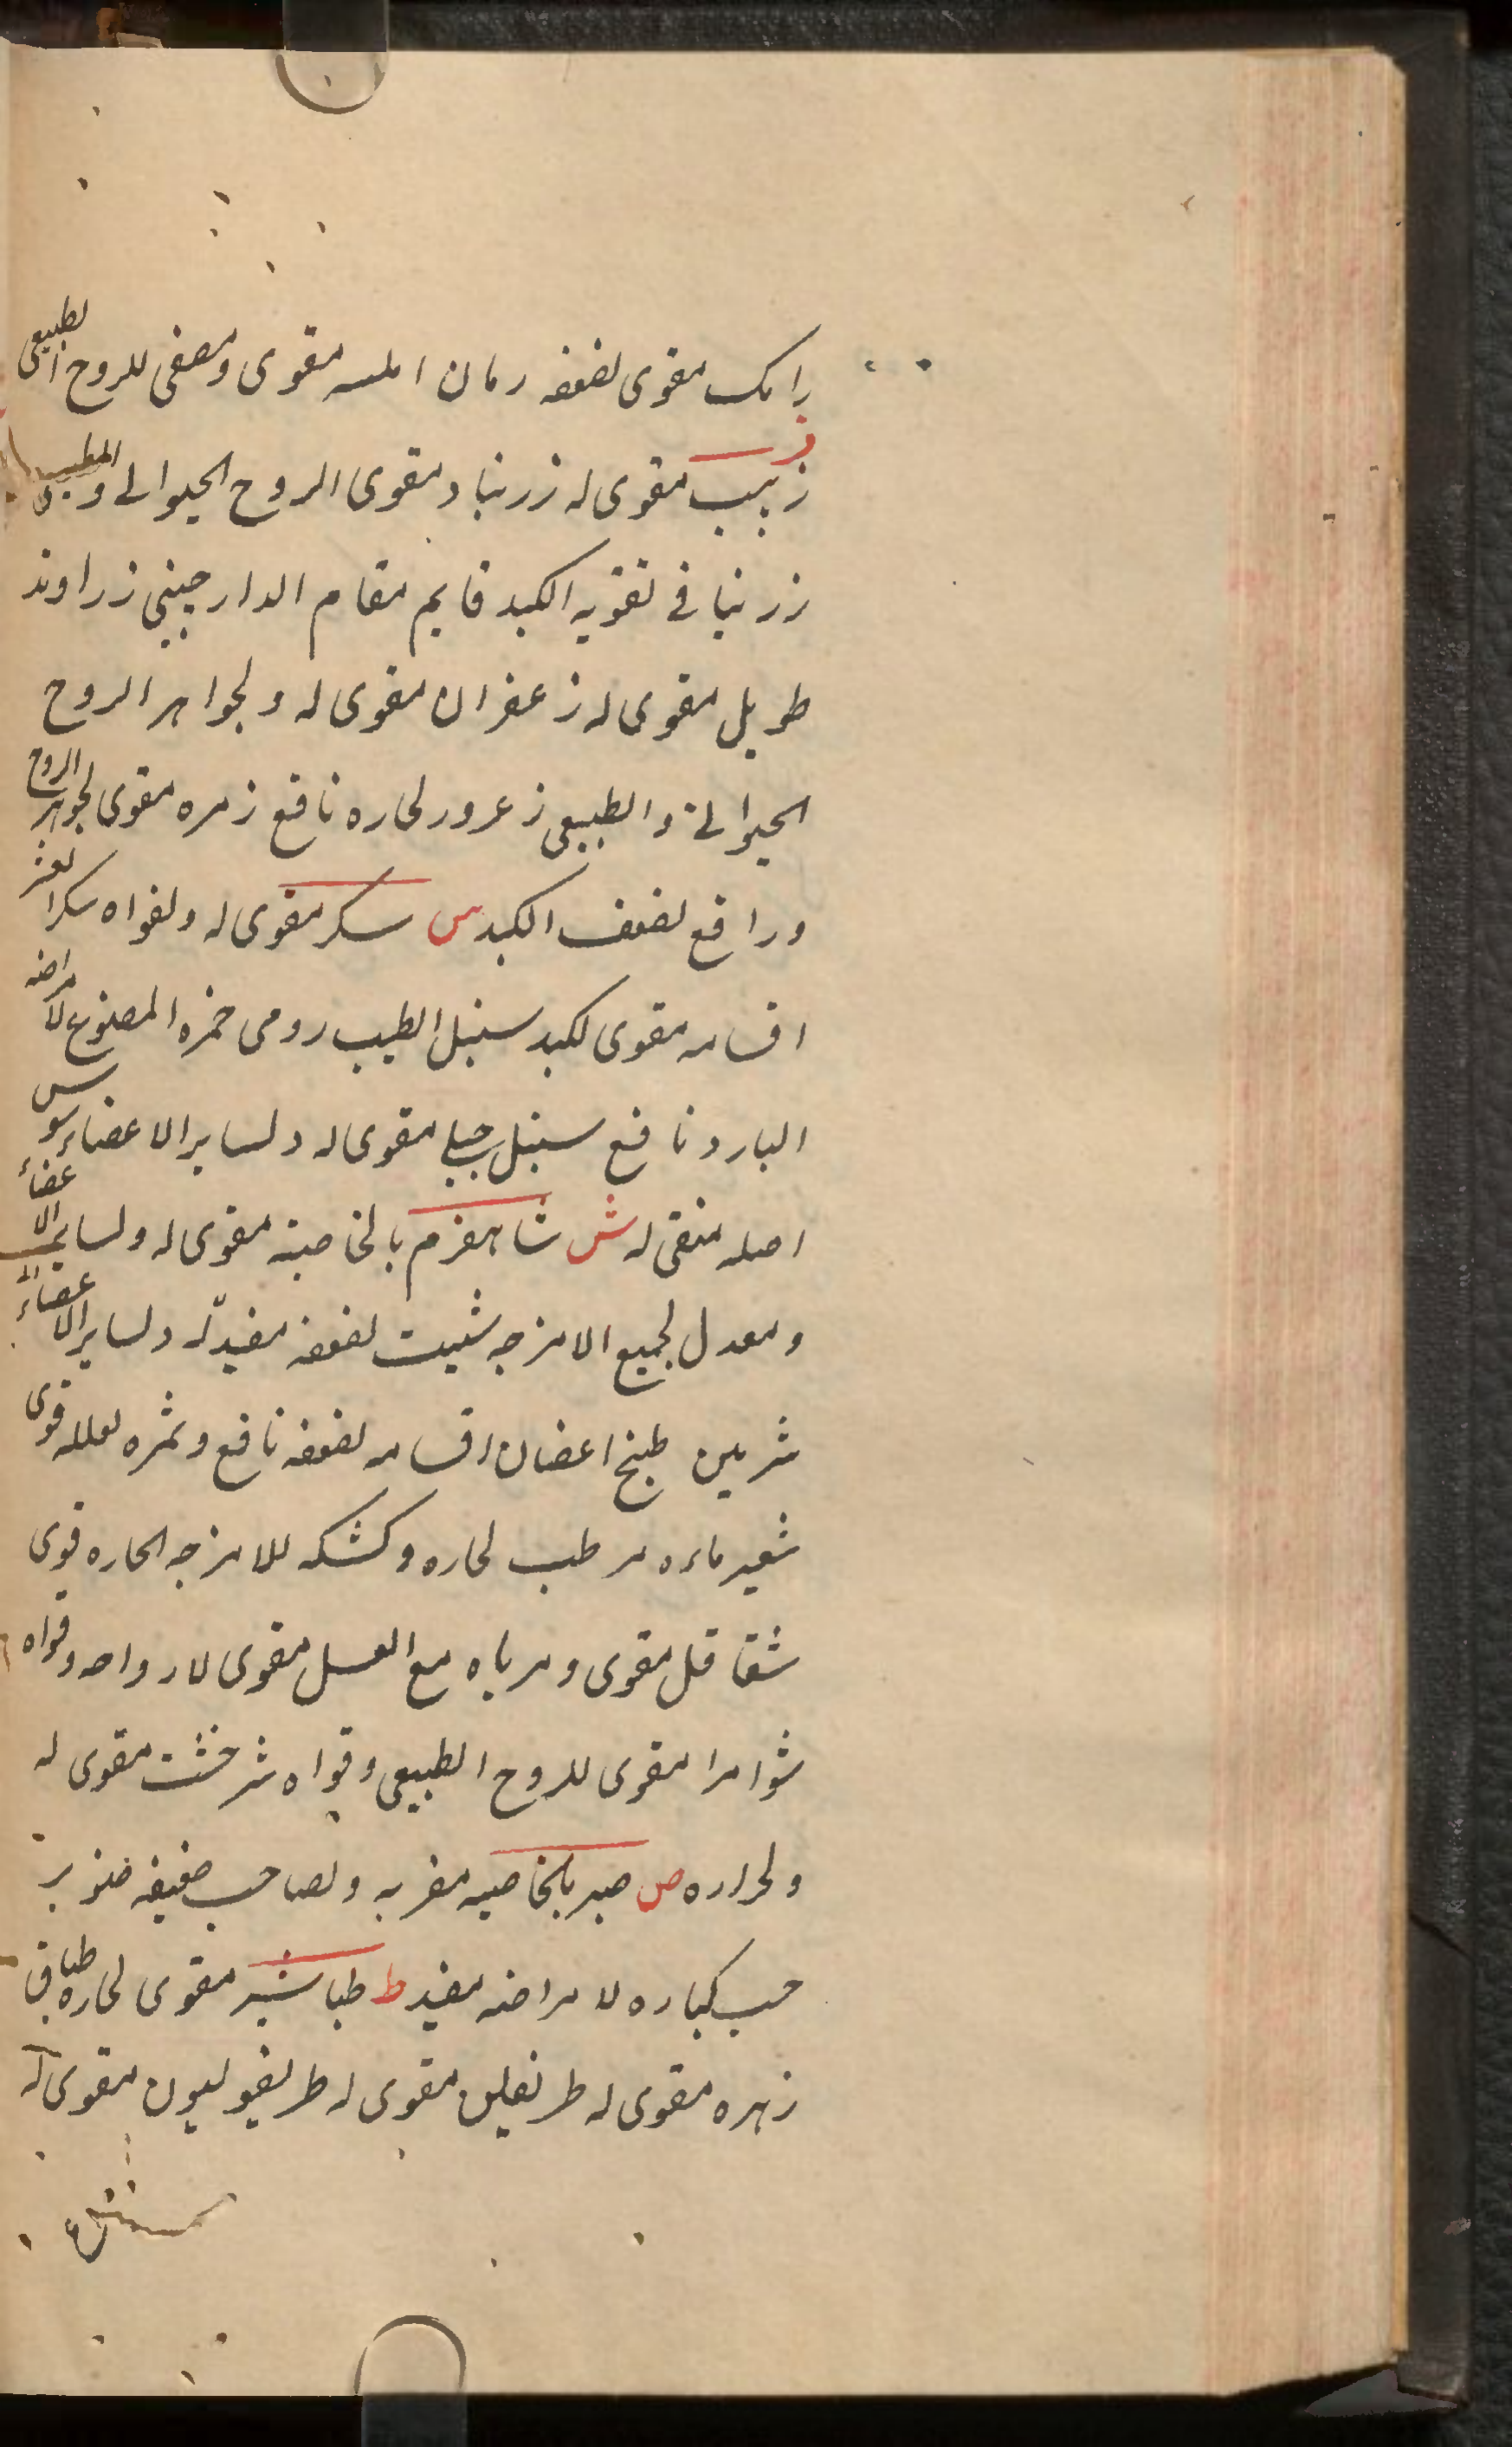 رامک مقوی لضعفه رمان املسه مقوی ومصفی للروح الطبیعی
ز زبیب مقوی له زرنباد مقوی الروح الحیوانی والطبیعی
زرنبا فی تقویه الکبد قایم مقام الدارجینی زراوند
طویل مقوی له زعفران مقوی له ولجواهر الروح
الحیوانی والطبیعی زعرور لحاره نافع زمره مقوی لجواهر الروح
ورافع لضعف الکبد س سکر مقوی له ولقواه سکر العشر
اقسامه مقوی لکبد سنبل الطیب رومی خمره المصنوع لامراضه
البارد نافع سنبل جبلی مقوی له ولسایر الاعضاء سوس
اصله منقی له ش شاهفرم بالخاصیة مقوی له ولسایر الاعضاء
ومعدل لجمیع الامزجه شبت لضعفه مفید له ولسایر الاعضاء
شربین طبخ اغصان اقسامه لضعفه نافع وثمره لعلله قوی
شعیر ماءه مرطب لحاره وکشکه للامزجه الحاره قوی
شقاقل مقوی ومرباه مع العسل مقوی لارواحه وقواه
شوامرا مقوی للروح الطبیعی وقواه شرخشت مقوی له
ولحراره ص صبر بالخاصیه مضر به ولصاحب ضعیفه صنوبر
حب کباره لامراضه مفید ط طباشیر مقوی لحاره طباق
زهره مقوی له طریفلن مقوی له طریفولیون مقوی له